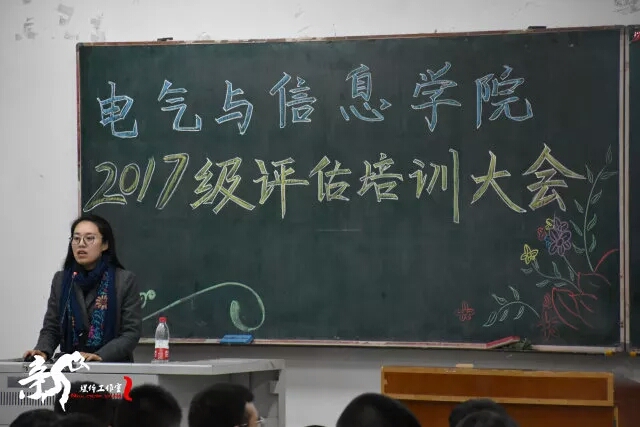 电气与信息学院
2017级评估培训大会
新
媒体工作室